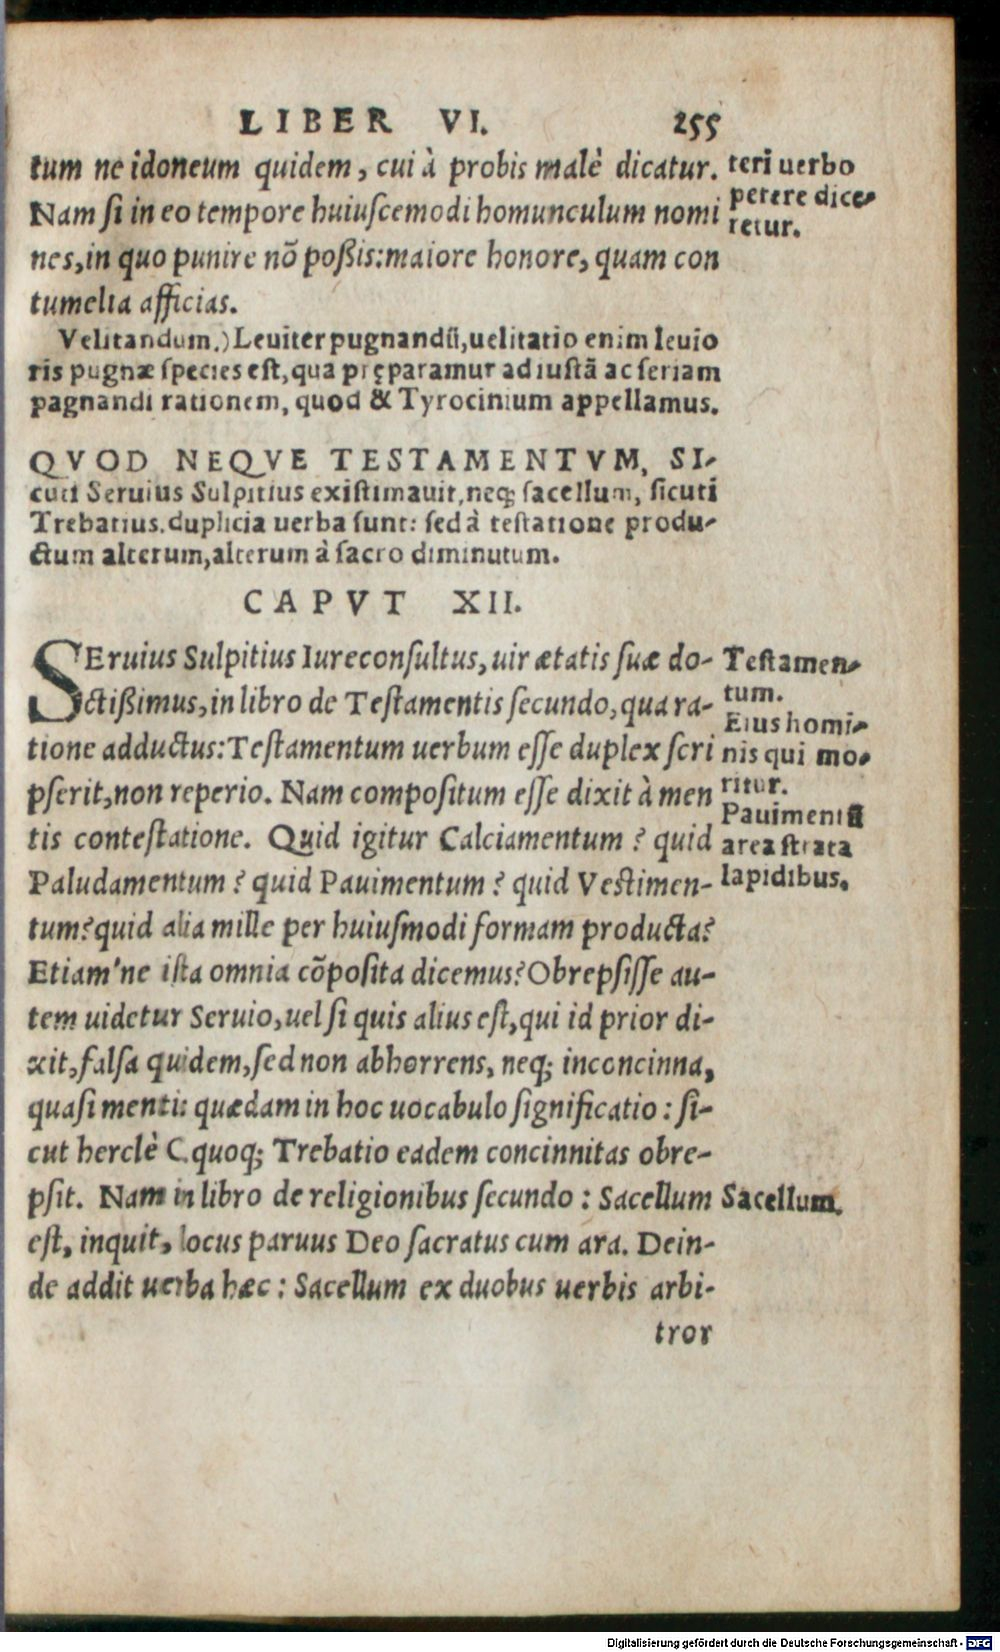 LIBER VI. 255
tum ne idoneum quidem, cui à probis malè dicatur.
Nam si in eo tempore huiuscemodi homunculum nomi
nes, in quo punire nõ poßis: maiore honore, quam con
tumelia afficias.
Velitandum.) Leuiter pugnandũ, uelitatio enim leuio
ris pugnæ species est, qua pręparamur ad iustã ac seriam
pagnandi rationem, quod & Tyrocinium appellamus.
teri uerbo
petere dice-
retur.
QVOD NEQVE TESTAMENTVM, SI-
cuti Seruius Sulpitius existimauit, neq; sacellum, sicuti
Trebatius, duplicia uerba sunt: sed à testatione produ-
ctum alterum, alterum à sacro diminutum.
CAPVT XII.
SEruius Sulpitius Iureconsultus, uir ætatis suæ do-
ctißimus, in libro de Testamentis secundo, qua ra-
tione adductus: Testamentum uerbum esse duplex scri
pserit, non reperio. Nam compositum esse dixit à men
tis contestatione. Quid igitur Calciamentum? quid
Paludamentum? quid Pauimentum? quid Vestimen-
tum? quid alia mille per huiusmodi formam producta?
Etiam'ne ista omnia cõposita dicemus? Obrepsisse au-
tem uidetur Seruio, uel si quis alius est, qui id prior di-
xit, falsa quidem, sed non abhorrens, neq; inconcinna,
quasi mentis quædam in hoc uocabulo significatio: si-
cut herclè C. quoq; Trebatio eadem concinnitas obre-
psit. Nam in libro de religionibus secundo: Sacellum
est, inquit, locus paruus Deo sacratus cum ara. Dein-
de addit uerba hæc: Sacellum ex duobus uerbis arbi-
tror
Testamen-
tum.
Eius homi-
nis qui mo-
ritur.
Pauimentũ
area strata
lapidibus.
Sacellum.
Digitalisierung gefördert durch die Deutsche Forschungsgemeinschaft - DFG